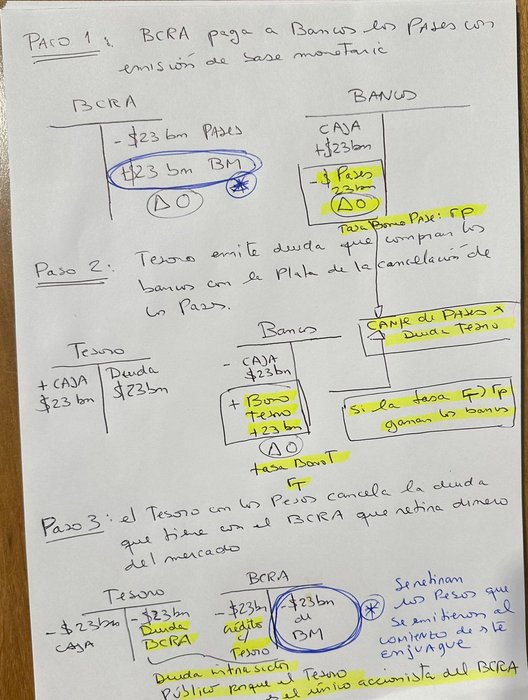 PASO 1: BCRA paga a Bancos los PASES con
emisión de base monetaria
BCRA
- $23 bn PASES
+$23 bn BM
*
Δ0
BANCOS
CAJA
+$23bn
- $ Pases
23bn
Δ0
Tasa Bono PASE: rp
Paso 2: Tesoro emite deuda que compran los
bancos con la Plata de la cancelación de
los Pases.
CANJE de PASES x
Deuda Tesoro
Tesoro
+ CAJA
$23 bn
Deuda
$23bn
Bancos
- CAJA
$23bn
+ Bono
Tesoro
+23 bn
Δ0
tasa Bono T
rT
si la tasa rT > rp
ganan los bancos
Paso 3: el Tesoro con los Pesos cancela la deuda
que tiene con el BCRA que retira dinero
del mercado
Tesoro
-$23bn
CAJA
-$23bn
Deuda
BCRA
BCRA
-$23bn
crédito
c/
Tesoro
-$23bn
de
BM
*
Se retiran
los Pesos que
se emitieron al
comienzo de este
enjuague
Deuda intrasector
Público porque el Tesoro
es el único accionista del BCRA